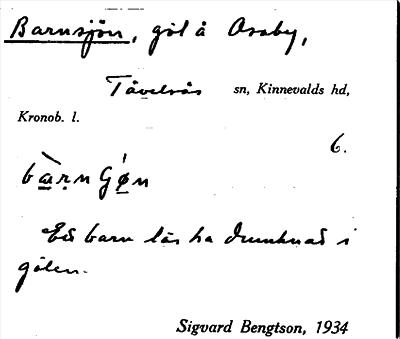 Barnsjön, göl å Osaby,
Tävelsås sn, Kinnevalds hd,
Kronob. l.
6.
bàrnGø̀n
Ett barn lär ha drunknat i
gölen.
Sigvard Bengtson, 1934